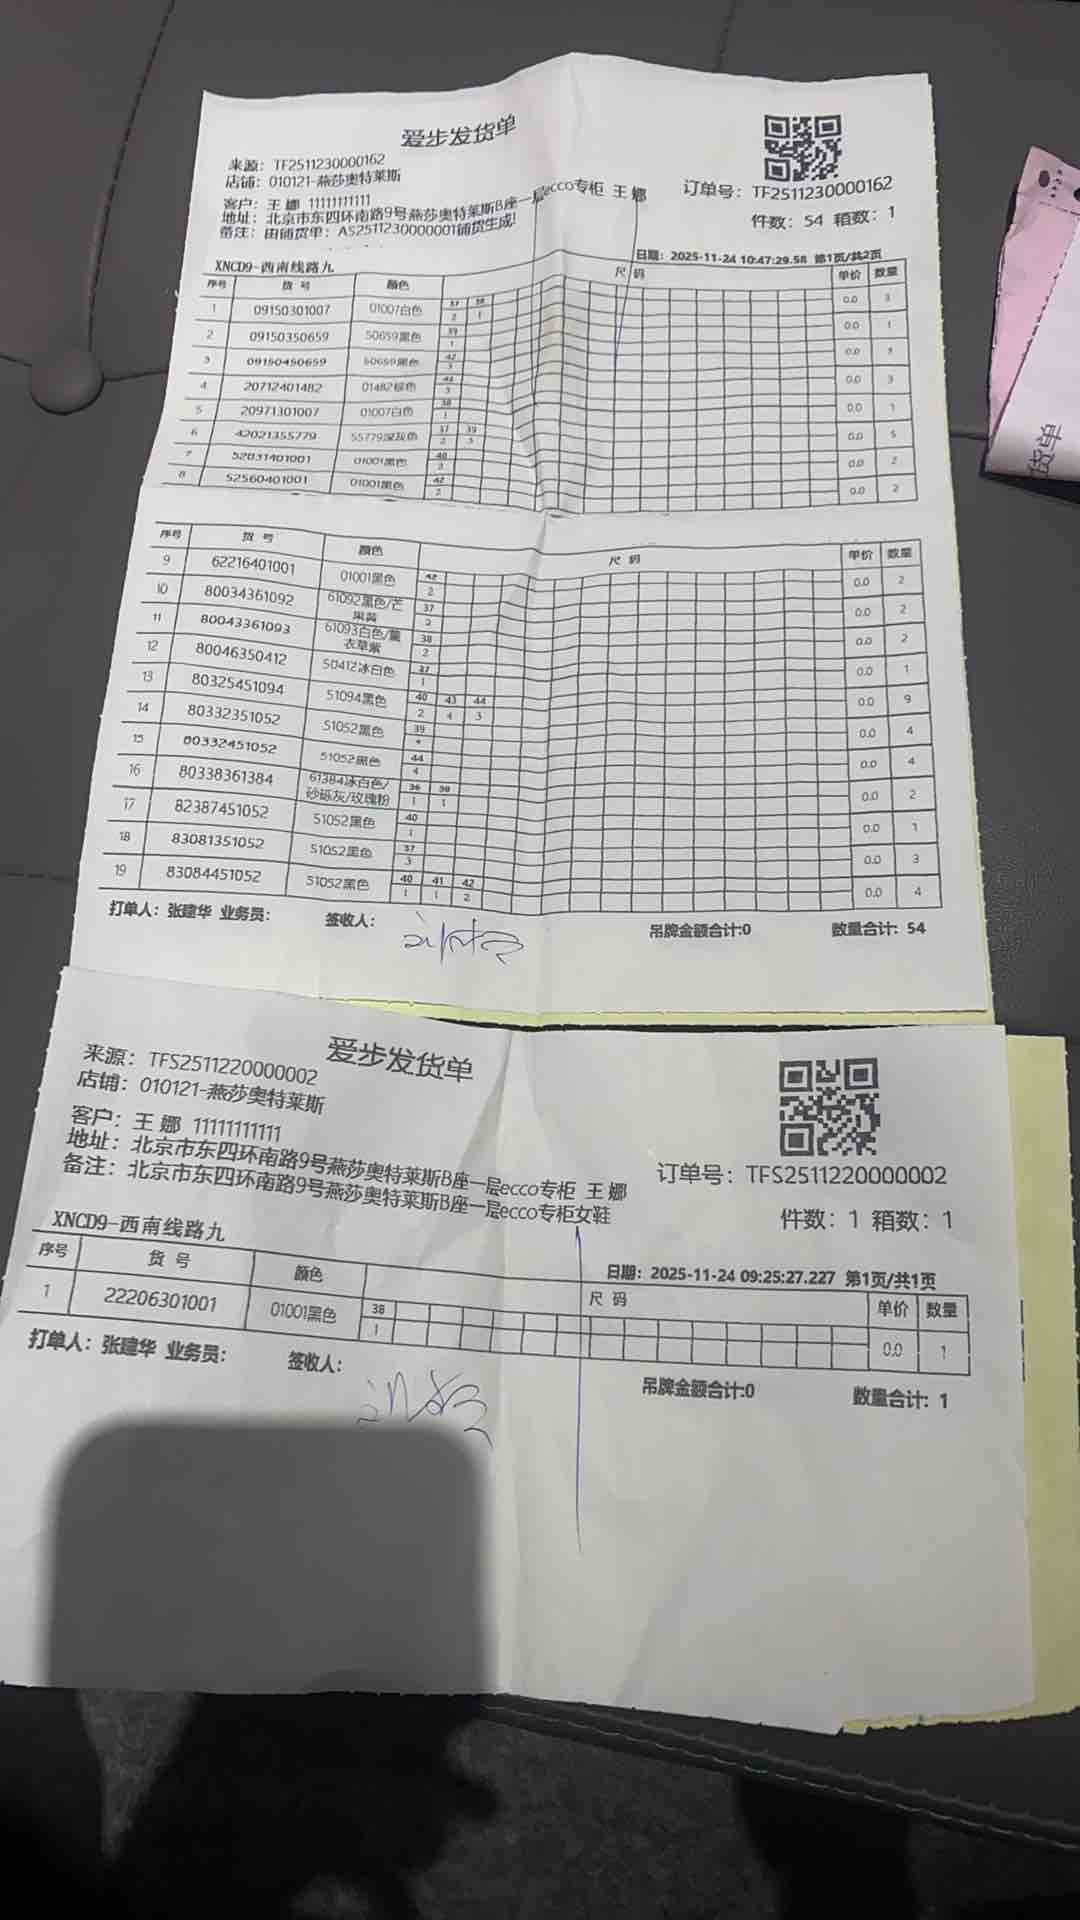 爱步发货单
来源：TF2511230000162
店铺：010121-燕莎奥特莱斯
客户：王 娜 11111111111
地址：北京市东四环南路9号燕莎奥特莱斯B座一层ecco专柜 王 娜
备注：由铺货单：AS2511230000001铺货生成!
订单号：TF2511230000162
件数：54 箱数：1
XNCD9-西南线路九
日期：2025-11-24 10:47:29.58 第1页/共2页
序号 货 号 颜色 尺 码 单价 数量
1 09150301007 01007白色 37 38 0.0 3
2 1
2 09150350659 50659黑色 39 0.0 1
1
3 09150450659 50659黑色 42 0.0 3
3
4 20712401482 01482棕色 0.0 3
3
5 20971301007 01007白色 38 0.0 1
1
6 42021355779 55779深灰色 37 39 0.0 5
2 3
7 52831401001 01001黑色 40 0.0 2
2
8 52560401001 01001黑色 42 0.0 2
2
序号 货 号 颜色 尺 码 单价 数量
9 62216401001 01001黑色 42 0.0 2
2
10 80034361092 61092黑色/芒果黄 37 0.0 2
2
11 80043361093 61093白色/薰衣草紫 38 0.0 2
2
12 80046350412 50412冰白色 37 0.0 1
1
13 80325451094 51094黑色 40 43 44 0.0 9
2 4 3
14 80332351052 51052黑色 39 0.0 4
4
15 80332451052 51052黑色 44 0.0 4
4
16 80338361384 61384冰白色/砂砾灰/玫瑰粉 36 38 0.0 2
1 1
17 82387451052 51052黑色 40 0.0 1
1
18 83081351052 51052黑色 37 0.0 3
3
19 83084451052 51052黑色 40 41 42 0.0 4
1 1 2
打单人：张建华 业务员： 签收人： 吊牌金额合计:0 数量合计：54
爱步发货单
来源：TFS2511220000002
店铺：010121-燕莎奥特莱斯
客户：王 娜 11111111111
地址：北京市东四环南路9号燕莎奥特莱斯B座一层ecco专柜 王 娜
备注：北京市东四环南路9号燕莎奥特莱斯B座一层ecco专柜女鞋
订单号：TFS2511220000002
件数：1 箱数：1
XNCD9-西南线路九
日期：2025-11-24 09:25:27.227 第1页/共1页
序号 货 号 颜色 尺 码 单价 数量
1 22206301001 01001黑色 38 0.0 1
1
打单人：张建华 业务员： 签收人： 吊牌金额合计:0 数量合计：1